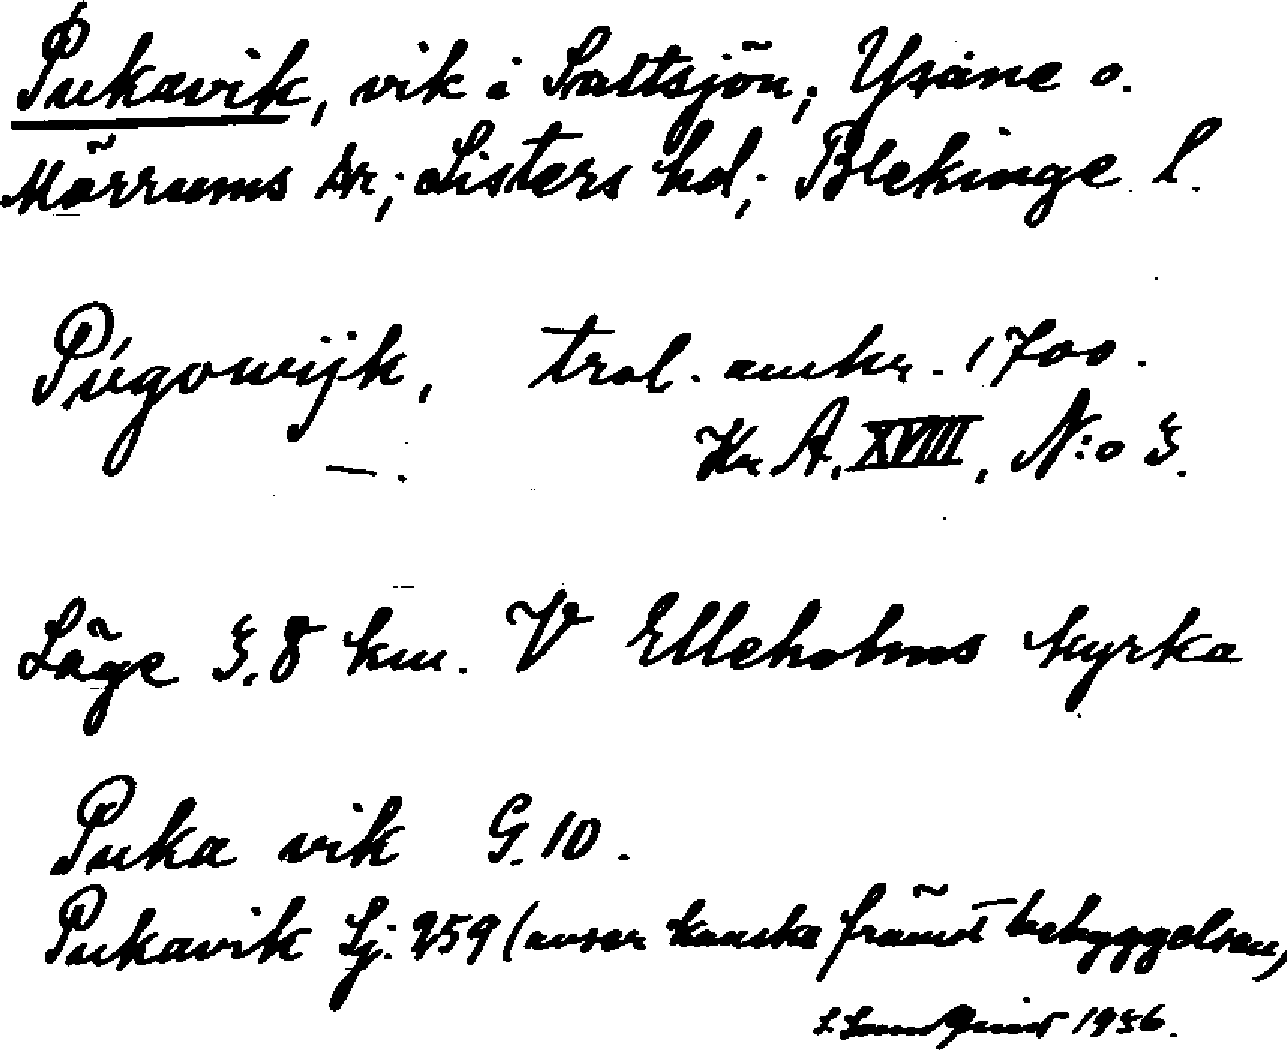 Pukavik, vik i Saltsjön, Ysane o.
Mörrums snr; Listers hd; Blekinge l.
Pugowijk, trol. omkr. 1700.
Kr. A. XVIII, N:o 3.
Läge 3.8 km. V Elleholms kyrka
Puka vik G. 10.
Pukavik Lj. 259 (avser kanske främst bebyggelsen)
1936.